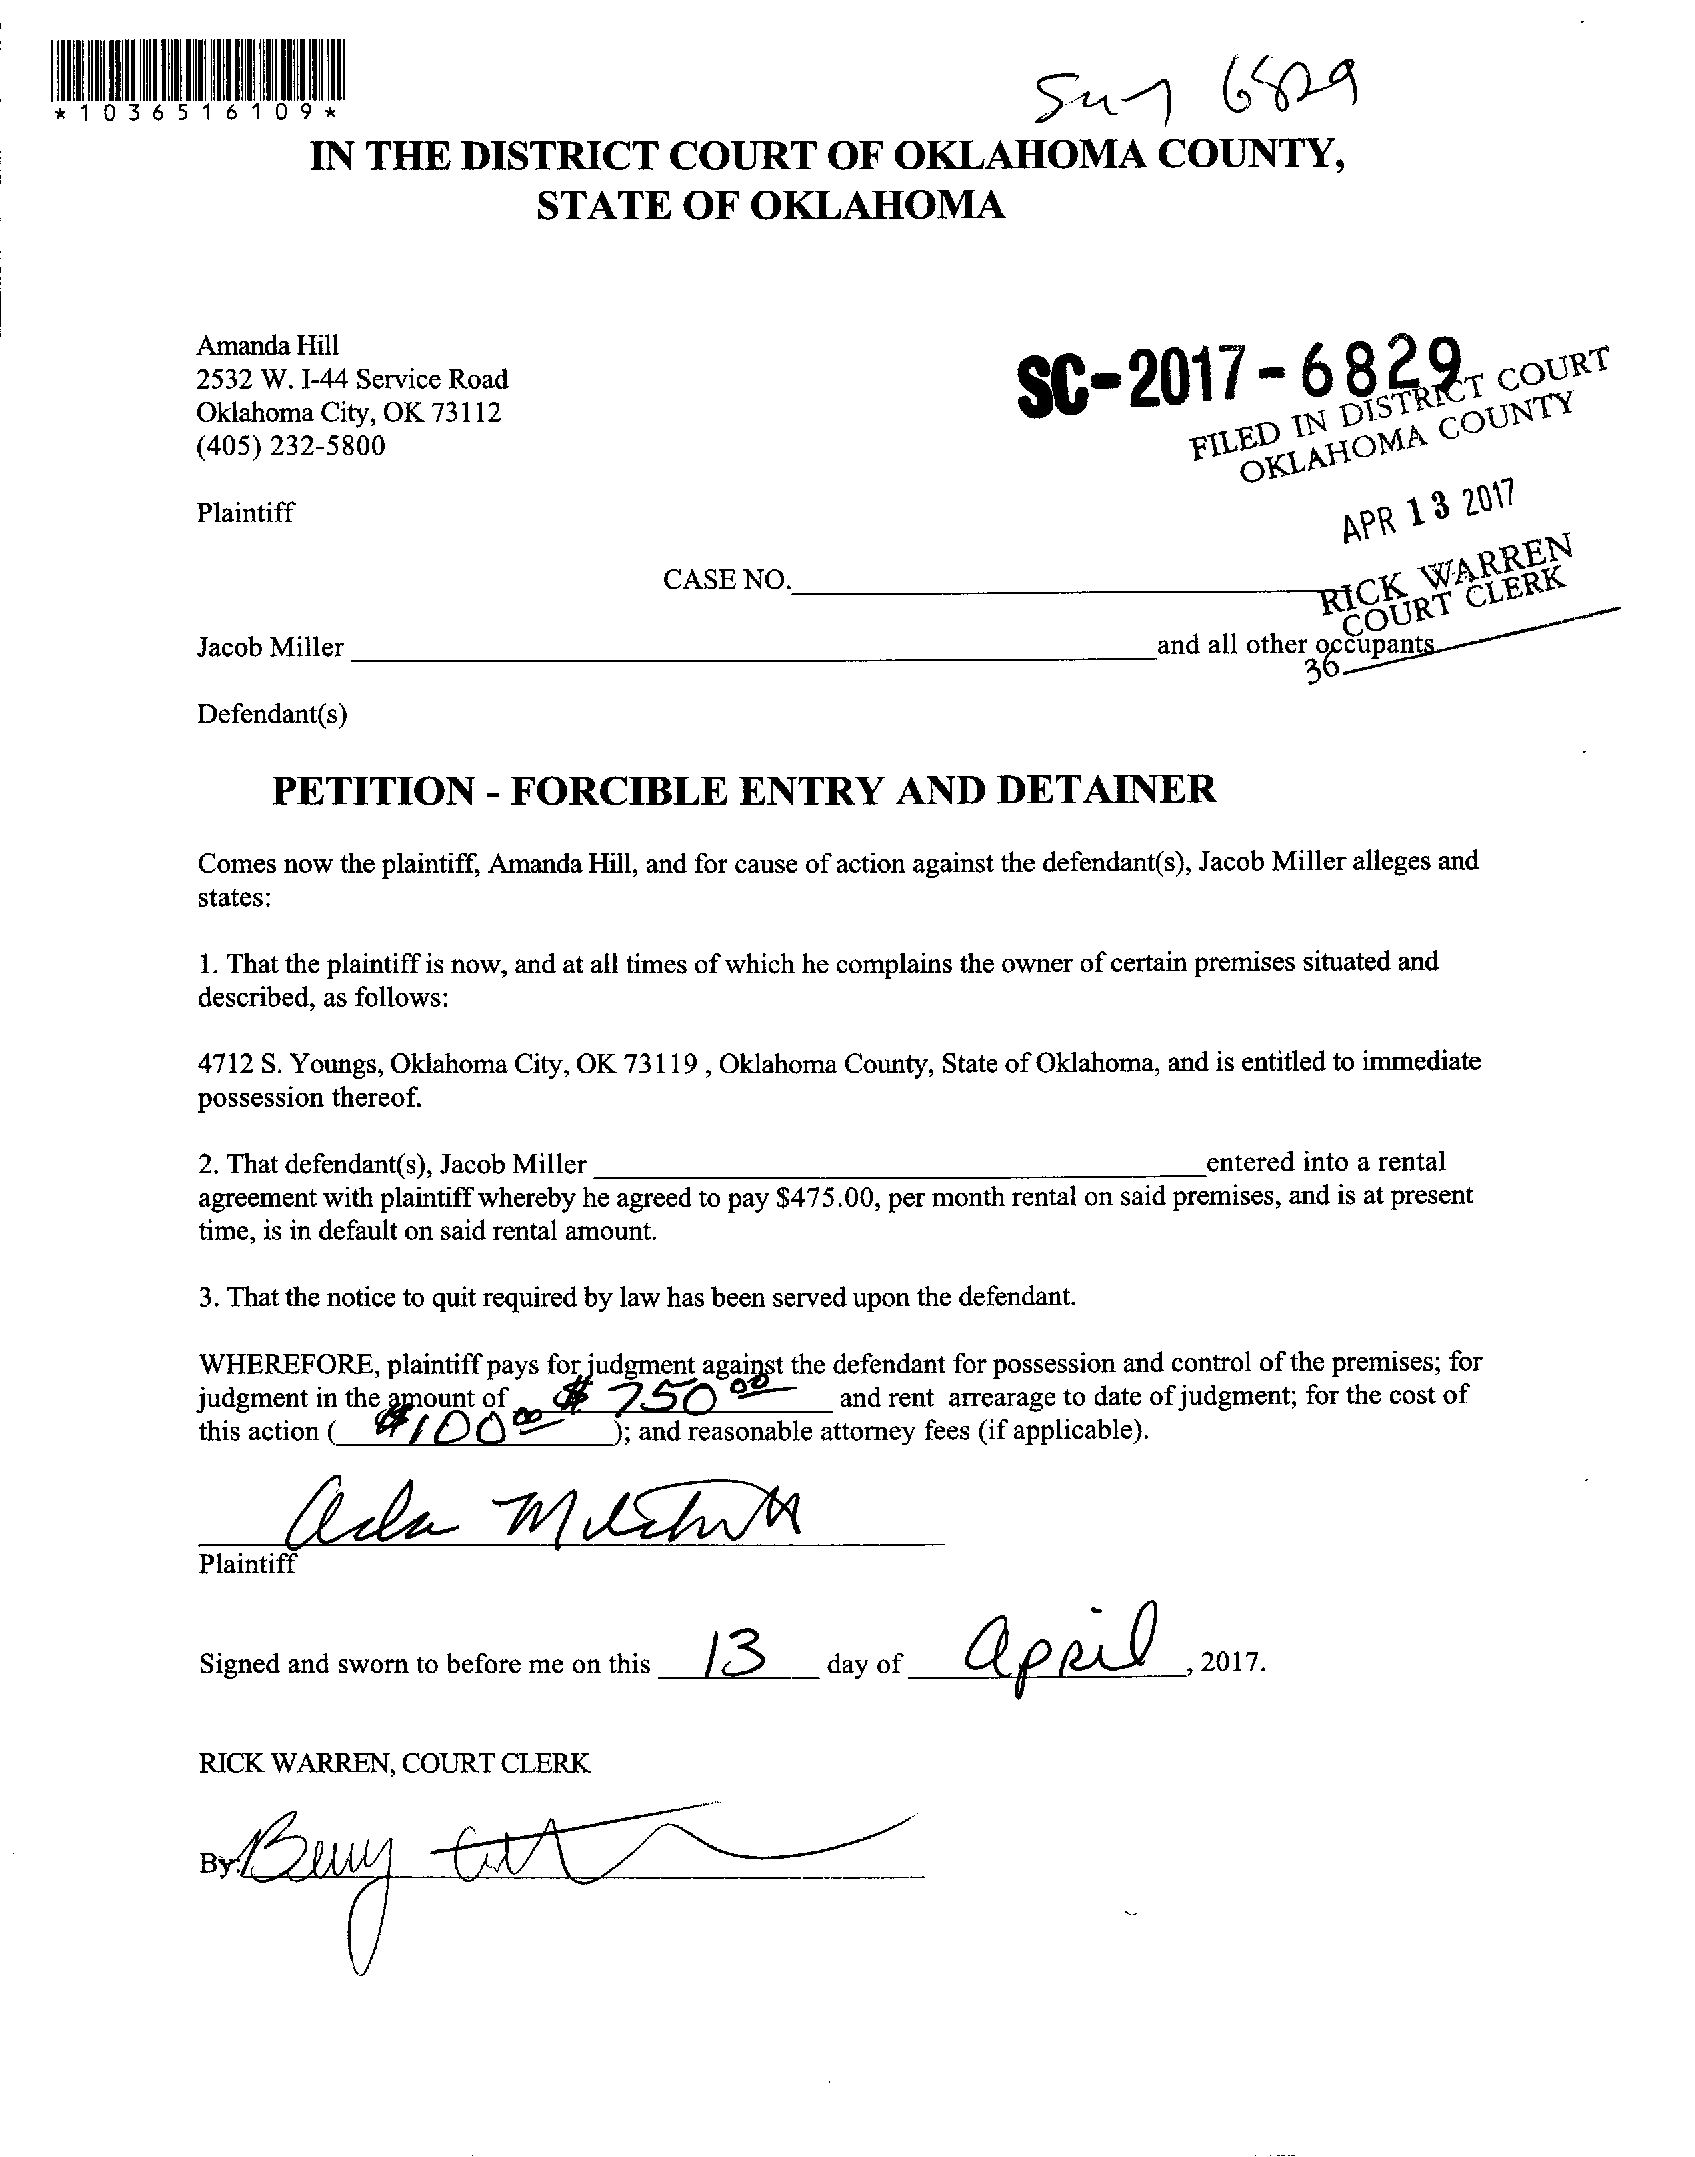 *1036516109*
6829
IN THE DISTRICT COURT OF OKLAHOMA COUNTY,
STATE OF OKLAHOMA
Amanda Hill
2532 W. I-44 Service Road
Oklahoma City, OK 73112
(405) 232-5800
SC-2017-6829
FILED IN DISTRICT COURT
OKLAHOMA COUNTY
APR 13 2017
RICK WARREN
COURT CLERK
36
Plaintiff
CASE NO.
Jacob Miller and all other occupants
Defendant(s)
PETITION - FORCIBLE ENTRY AND DETAINER
Comes now the plaintiff, Amanda Hill, and for cause of action against the defendant(s), Jacob Miller alleges and
states:
1. That the plaintiff is now, and at all times of which he complains the owner of certain premises situated and
described, as follows:
4712 S. Youngs, Oklahoma City, OK 73119 , Oklahoma County, State of Oklahoma, and is entitled to immediate
possession thereof.
2. That defendant(s), Jacob Miller entered into a rental
agreement with plaintiff whereby he agreed to pay $475.00, per month rental on said premises, and is at present
time, is in default on said rental amount.
3. That the notice to quit required by law has been served upon the defendant.
WHEREFORE, plaintiff pays for judgment against the defendant for possession and control of the premises; for
judgment in the amount of $750.00 and rent arrearage to date of judgment; for the cost of
this action ( $100.00 ); and reasonable attorney fees (if applicable).
Plaintiff
Signed and sworn to before me on this 13 day of April, 2017.
RICK WARREN, COURT CLERK
By: